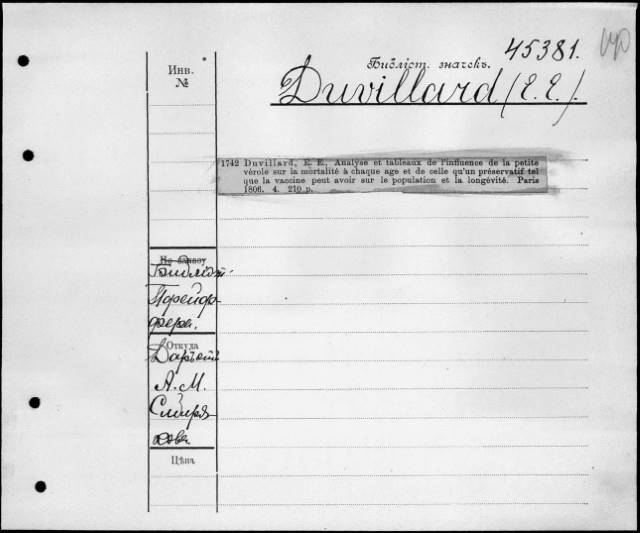 45381.
Инв.
№
Библіот. значекъ.
Duvillard (E. E.).
1742 Duvillard, E. E., Analyse et tableaux de l'influence de la petite
vérole sur la mortalité à chaque age et de celle qu'un préservatif tel
que la vaccine peut avoir sur le population et la longévité. Paris
1806. 4. 210 p.
Библіот.
Порейор
фера.
Откуда
Даръ отъ
А. М.
Сибиря
кова.
Цѣна